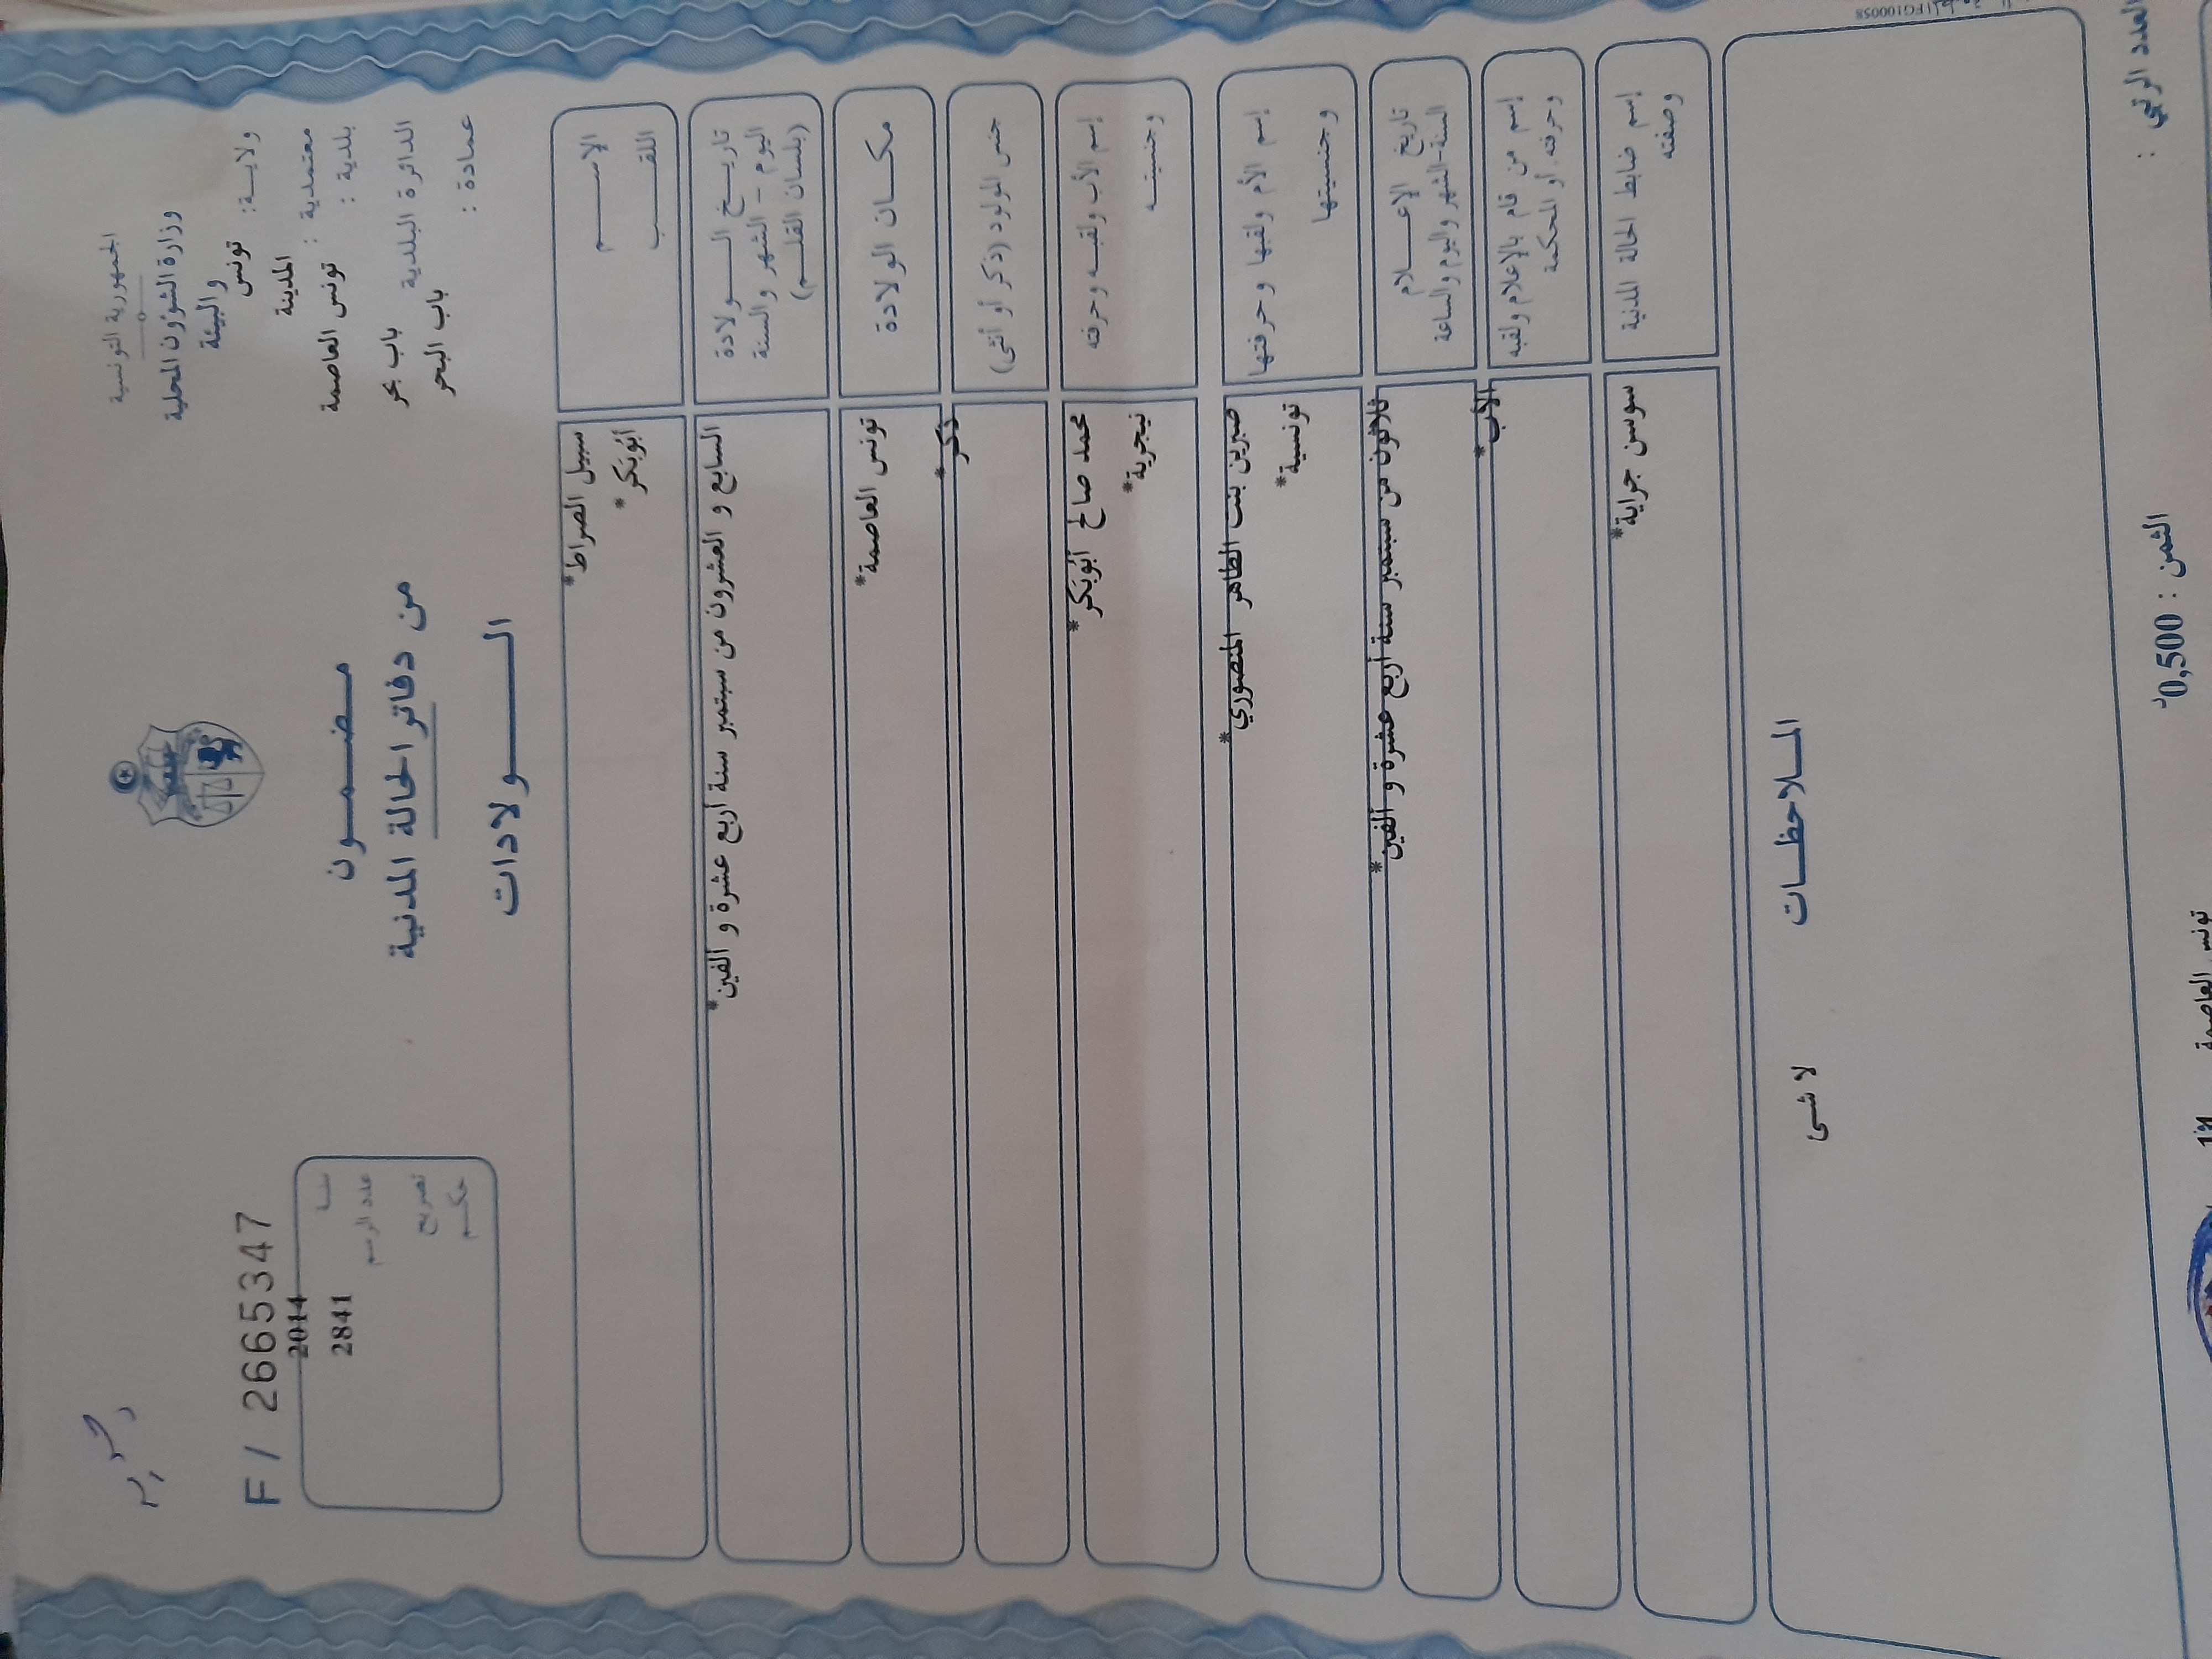 الجمهورية التونسية
وزارة الشؤون المحلية
والبيئة
ولايـة: تونس
معتمدية : المدينة
بلدية : تونس العاصمة
الدائرة البلدية باب بحر
عمادة : باب البحر
مـضـمـون
من دفاتر الحالة المدنية
الـولادات
F / 2665347
سنة 2014
عدد الرسم 2841
تصريح
حكم
الاسم سبيل الصراط*
اللقب أبوبكر*
تاريخ الولادة السابع و العشرون من سبتمبر سنة أربع عشرة و ألفين*
اليوم - الشهر والسنة
(بلسان القلم)
مكان الولادة تونس العاصمة*
جنس المولود (ذكر أو أنثى) ذكر*
إسم الأب ولقبه وحرفته محمد صالح أبوبكر*
وجنسيته نيجرية*
إسم الأم ولقبها وحرفتها صبرين بنت الطاهر المنصوري*
وجنسيتها تونسية*
تاريخ الإعلام ثلاثون من سبتمبر سنة أربع عشرة و ألفين*
السنة-الشهر واليوم والساعة
إسم من قام بالإعلام ولقبه الأب*
وحرفته أو المحكمة
إسم ضابط الحالة المدنية سوسن جراية*
وصفته
الملاحظات
لا شى
العدد الرتبي :
الثمن : 0,500د
تونس العاصمة